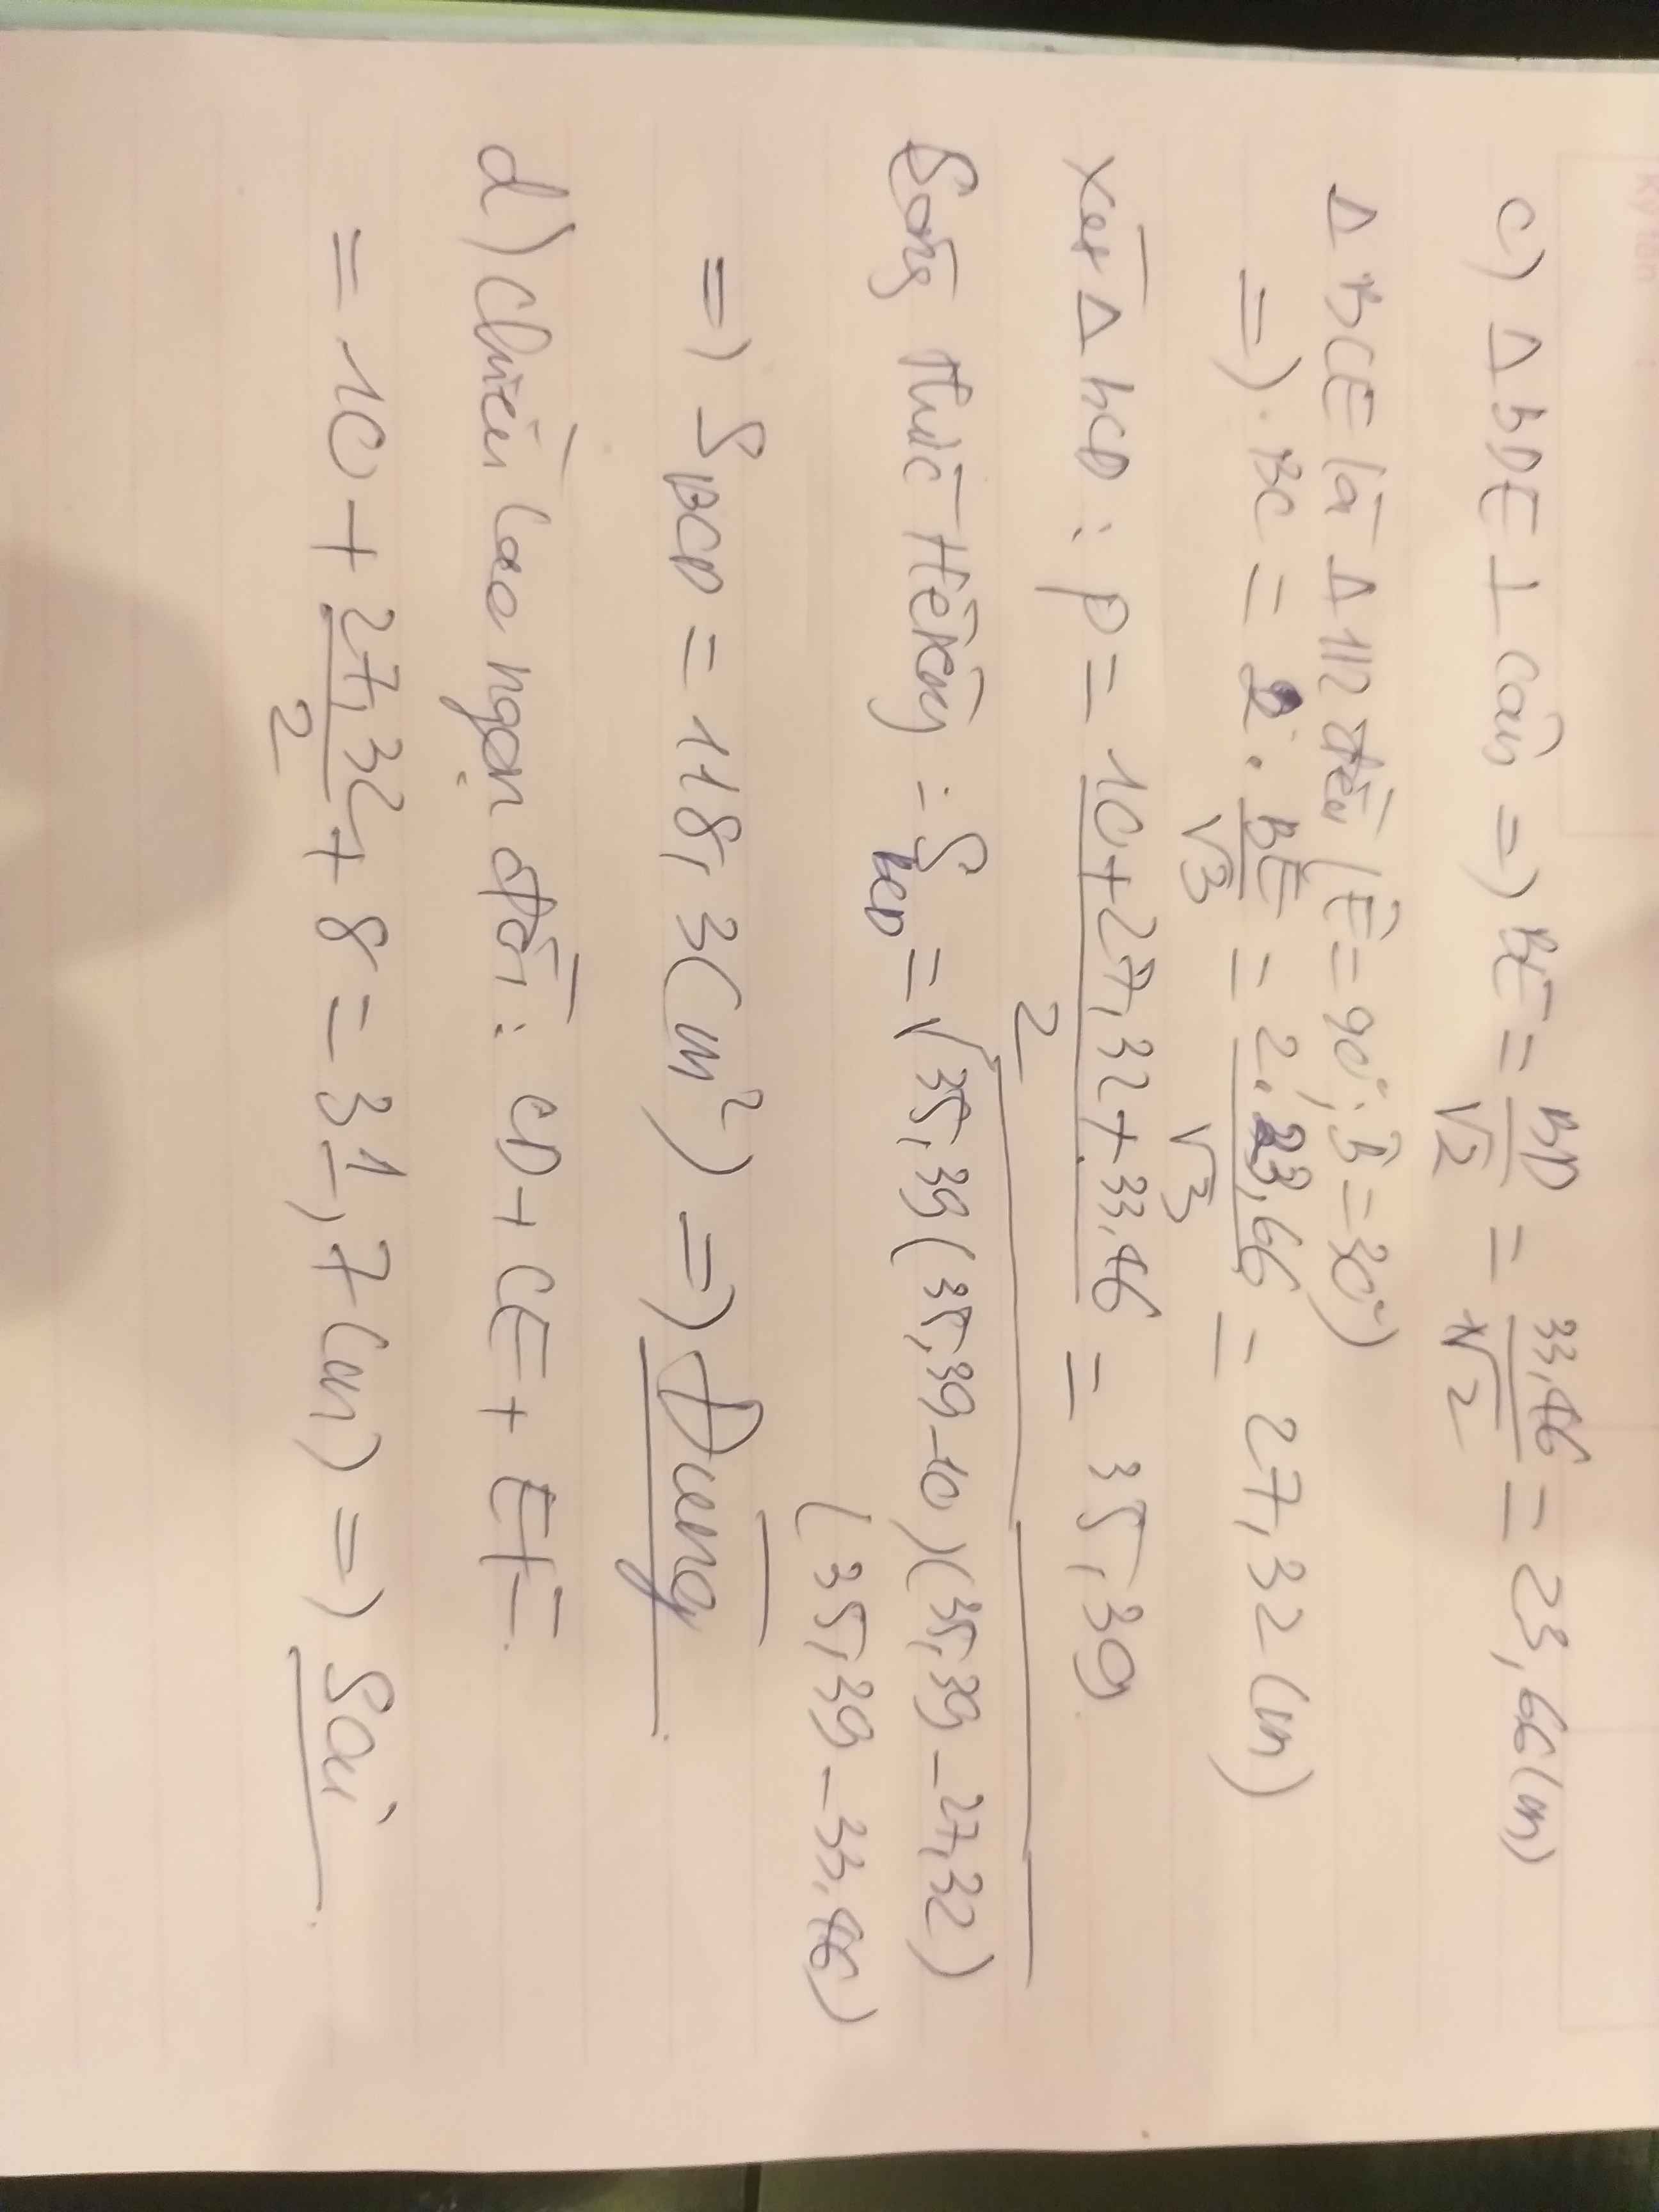 c) Δ BDE ⊥ cân => BE = BD/√2 = 33,46/√2 = 23,66 (m)
Δ BCE là Δ 1/2 đều (Ê = 90°; B̂ = 30°)
=> BC = 2 . BE/√3 = 2.23,66/√3 = 27,32 (m)
Xét Δ BCD : p = (10 + 27,32 + 33,46)/2 = 35,39
Công thức Hêrông : S BCD = √35,39 (35,39 - 10) (35,39 - 27,32)
(35,39 - 33,46)
=> S BCD = 118,3 (m²) => Đúng
d) Chiều cao ngọn đồi : CD + CE + EF
= 10 + 27,32/2 + 8 = 31,7 (m) => Sai